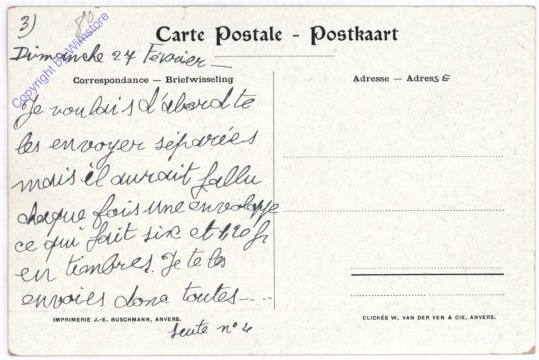 3)
80
Copyright by Wimstore
Carte Postale - Postkaart
Dimanche 27 Février
Correspondance — Briefwisseling
Adresse — Adres
Je voulais d'abord te
les envoyer séparées
mais il aurait fallu
chaque fois une enveloppe
ce qui fait six et 1,20 fr
en timbres. Je te les
envoies donc toutes
IMPRIMERIE J.-E. BUSCHMANN, ANVERS.
CLICHÉS W. VAN DER VEN & CIE, ANVERS.
suite n° 4